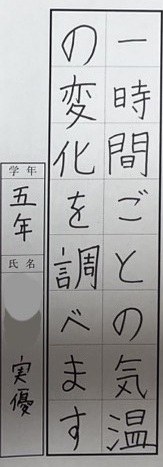 一時間ごとの気温
の変化を調べます
学年
五年
氏名
実優